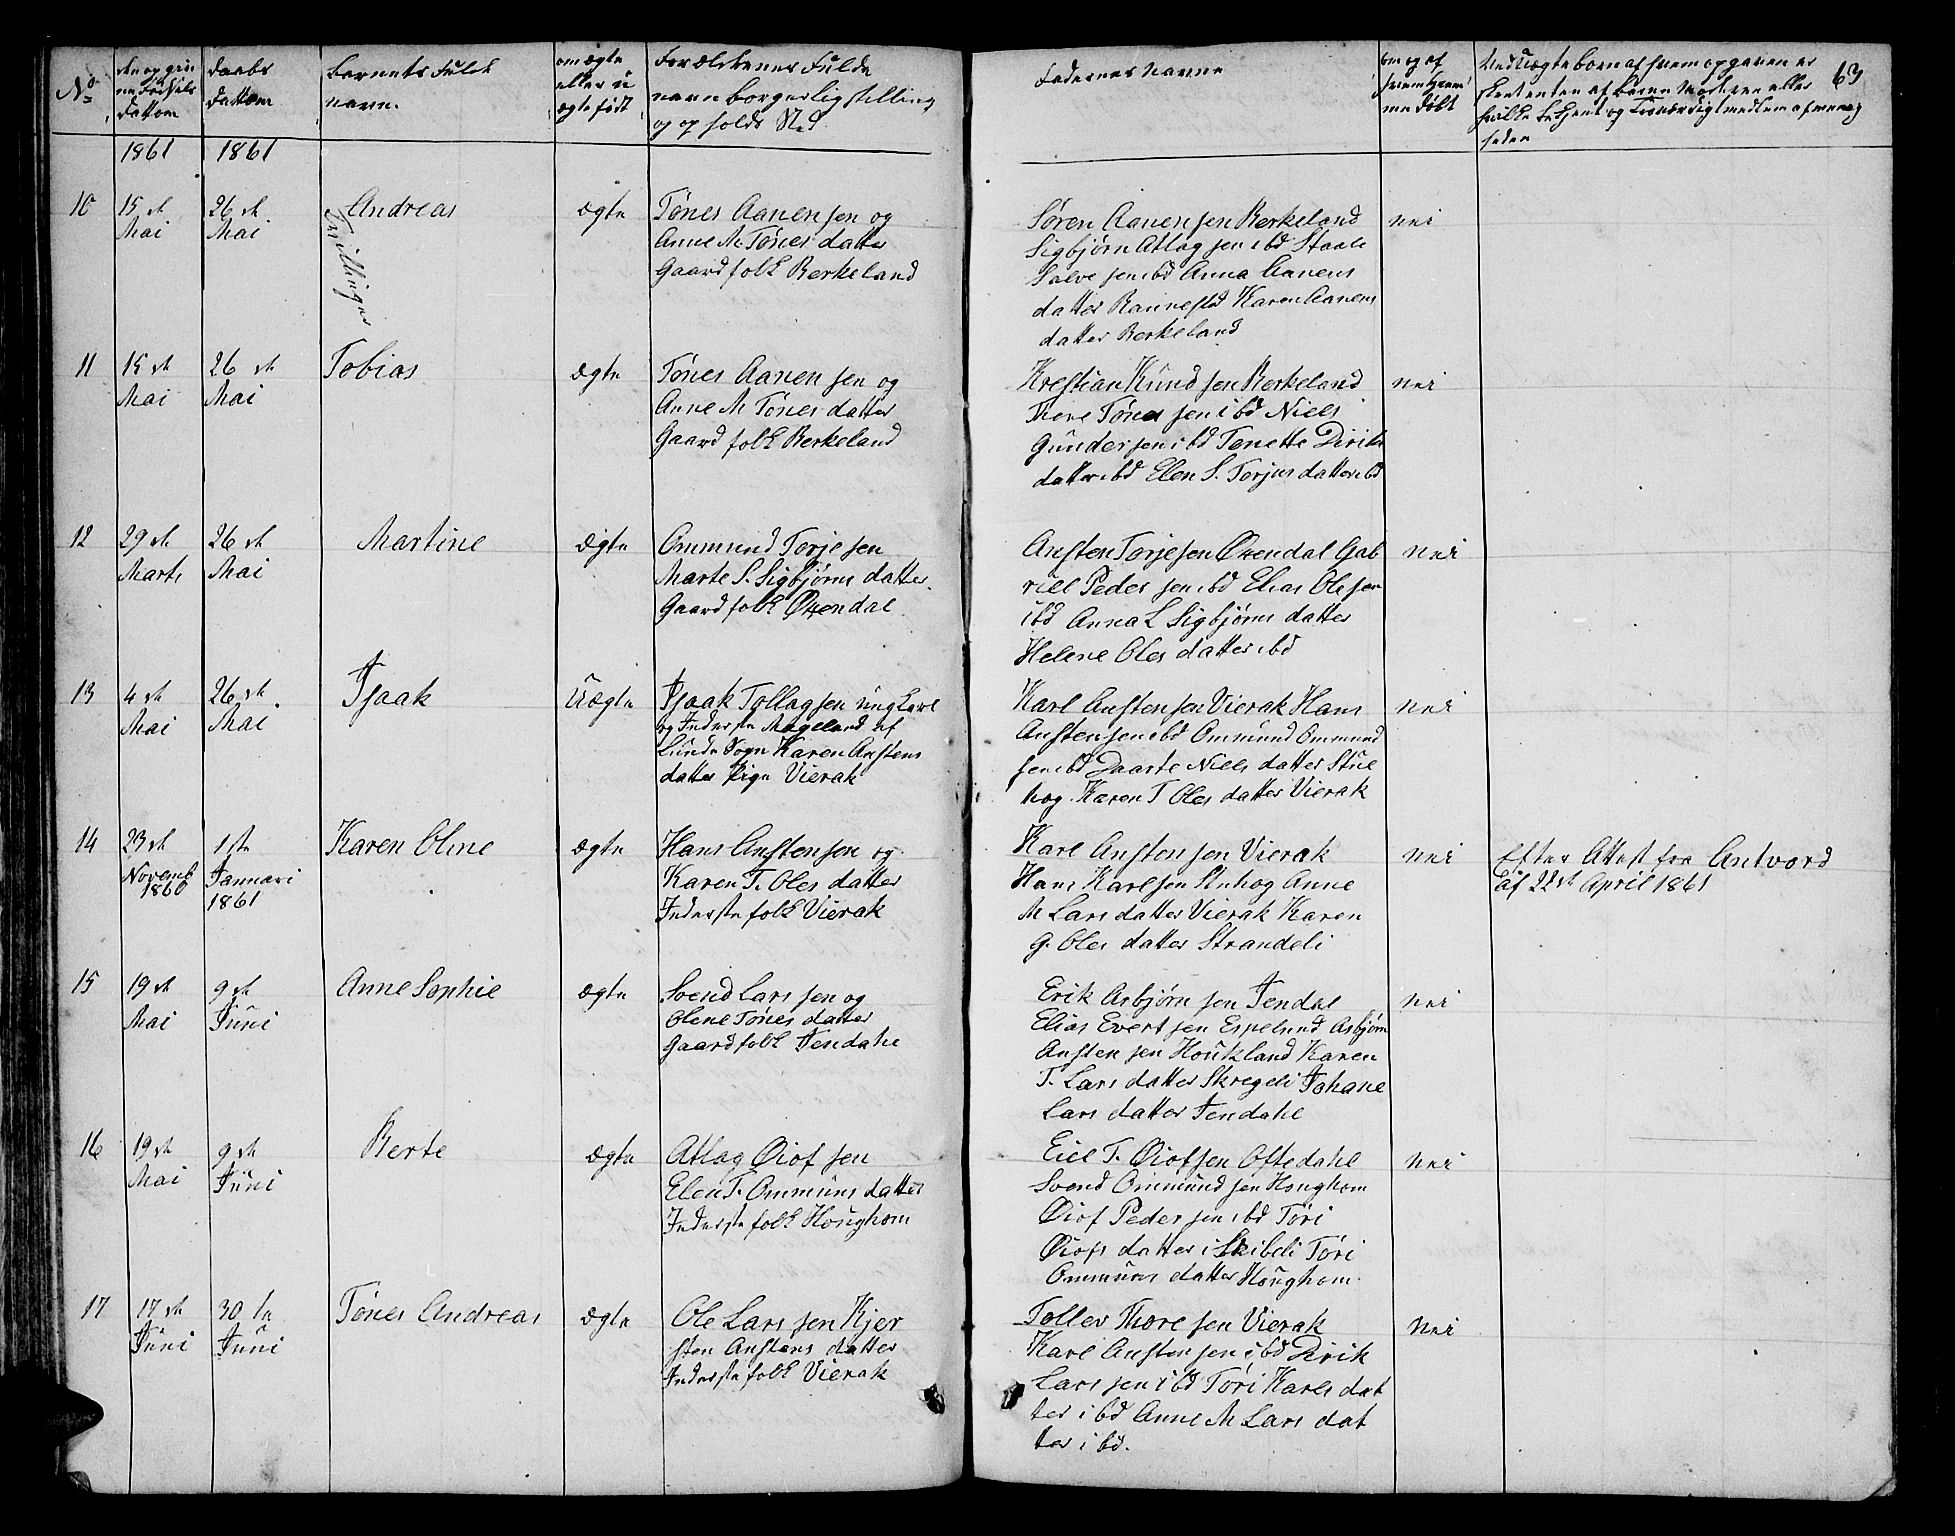 63
No
den opgiv
ne Fødsels
Dattom
Daabs
Dattom
Barnets Fulde
navn.
om ægte
eller u
ægte født
Forældrenes Fulde
navn borgerlig stilling
og opholds Sted
Fadernes navne
om og af
hvem hjem
me døbt
1861 1861
10
15de
Mai
26de
Mai
Andreas
Tvillinger
ægte
Tønes Aanensen og
Anne M. Tønes datter
Gaardfolk Berkeland
Søren Aanensen Berkeland
Sigbjørn Atlagsen ibd Staale
Salvesen ibd Anna Aanens
datter Rannestd Karen Aanens
datter Berkeland
nei
11
15de
Mai
26de
Mai
Tobias
ægte
Tønes Aanensen og
Anne M Tønes datter
Gaardfolk Berkeland
Krestian Knudsen Berkeland
Thore Tønessen ibd Niels
Gundersen ibd Tonette Dirik
datter ibd Elen S. Torjus datter ibd
nei
12
29de
Marts
26de
Mai
Martine
ægte
Ommund Torjesen
Marte S. Sigbjørns datter
Gaardfolk Øxendal
Ansten Torjesen Øxendal Gab
riel Pedersen ibd Elias Olesen
ibd Anna L Sigbjørns datter
Helene Oles datter ibd
nei
13
4de
Mai
26de
Mai
Isaak
Uægte
Isaak Tollagsen ungkarl
og Inderste Mageland af
Lunde Sogn Karen Anstens
datter Pige Vierak
Karl Anstensen Vierak Hans
Anstensen ibd Ommund Ommund
sen ibd Daarte Niels datter Stue
hog Karen T Oles datter Vierak
nei
14
23de
Novemb
1860
1ste
Januari
1861
Karen Oline
ægte
Hans Anstensen og
Karen T. Oles datter
Inderstefolk Vierak
Karl Anstensen Vierak
Hans Karlsen Stuhog Anne
M Lars datter Vierak Karen
G. Oles datter Strandeli
nei
Efter Attest fra Antvord
af 22de April 1861
15
19de
Mai
9de
Juni
Anne Sophie
ægte
Svend Larssen og
Olene Tønes datter
Gaardfolk Jendahl
Erik Asbjørnsen Jendal
Elias Evertsen Espelund Asbjørn
Anstensen Houkland Karen
T. Lars datter Skregeli Johane
Lars datter Jendahl
nei
16
19de
Mai
9de
Juni
Berte
ægte
Atlag Øiofsen
Elen T. Ommuns datter
Inderstefolk Houghom
Eiel T. Øiofsen Oftedahl
Svend Ommundsen Houghom
Øiof Pedersen ibd Tøri
Øiofs datter i Skibeli Tøri
Ommuns datter Houghom
nei
17
17de
Juni
30te
Juni
Tønes Andreas
ægte
Ole Larssen Kjer
sten Anstens datter
Inderstefolk Vierak
Tollev Thoresen Vierak
Karl Anstensen ibd Dirik
Larssen ibd Tøri Karls dat
ter ibd Anne M Lars dat
ter ibd.
nei